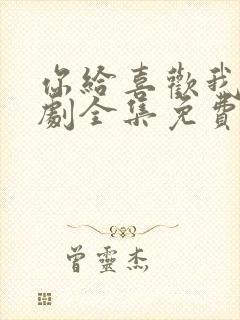 你給喜歡我
劇全集免費
曾靈杰